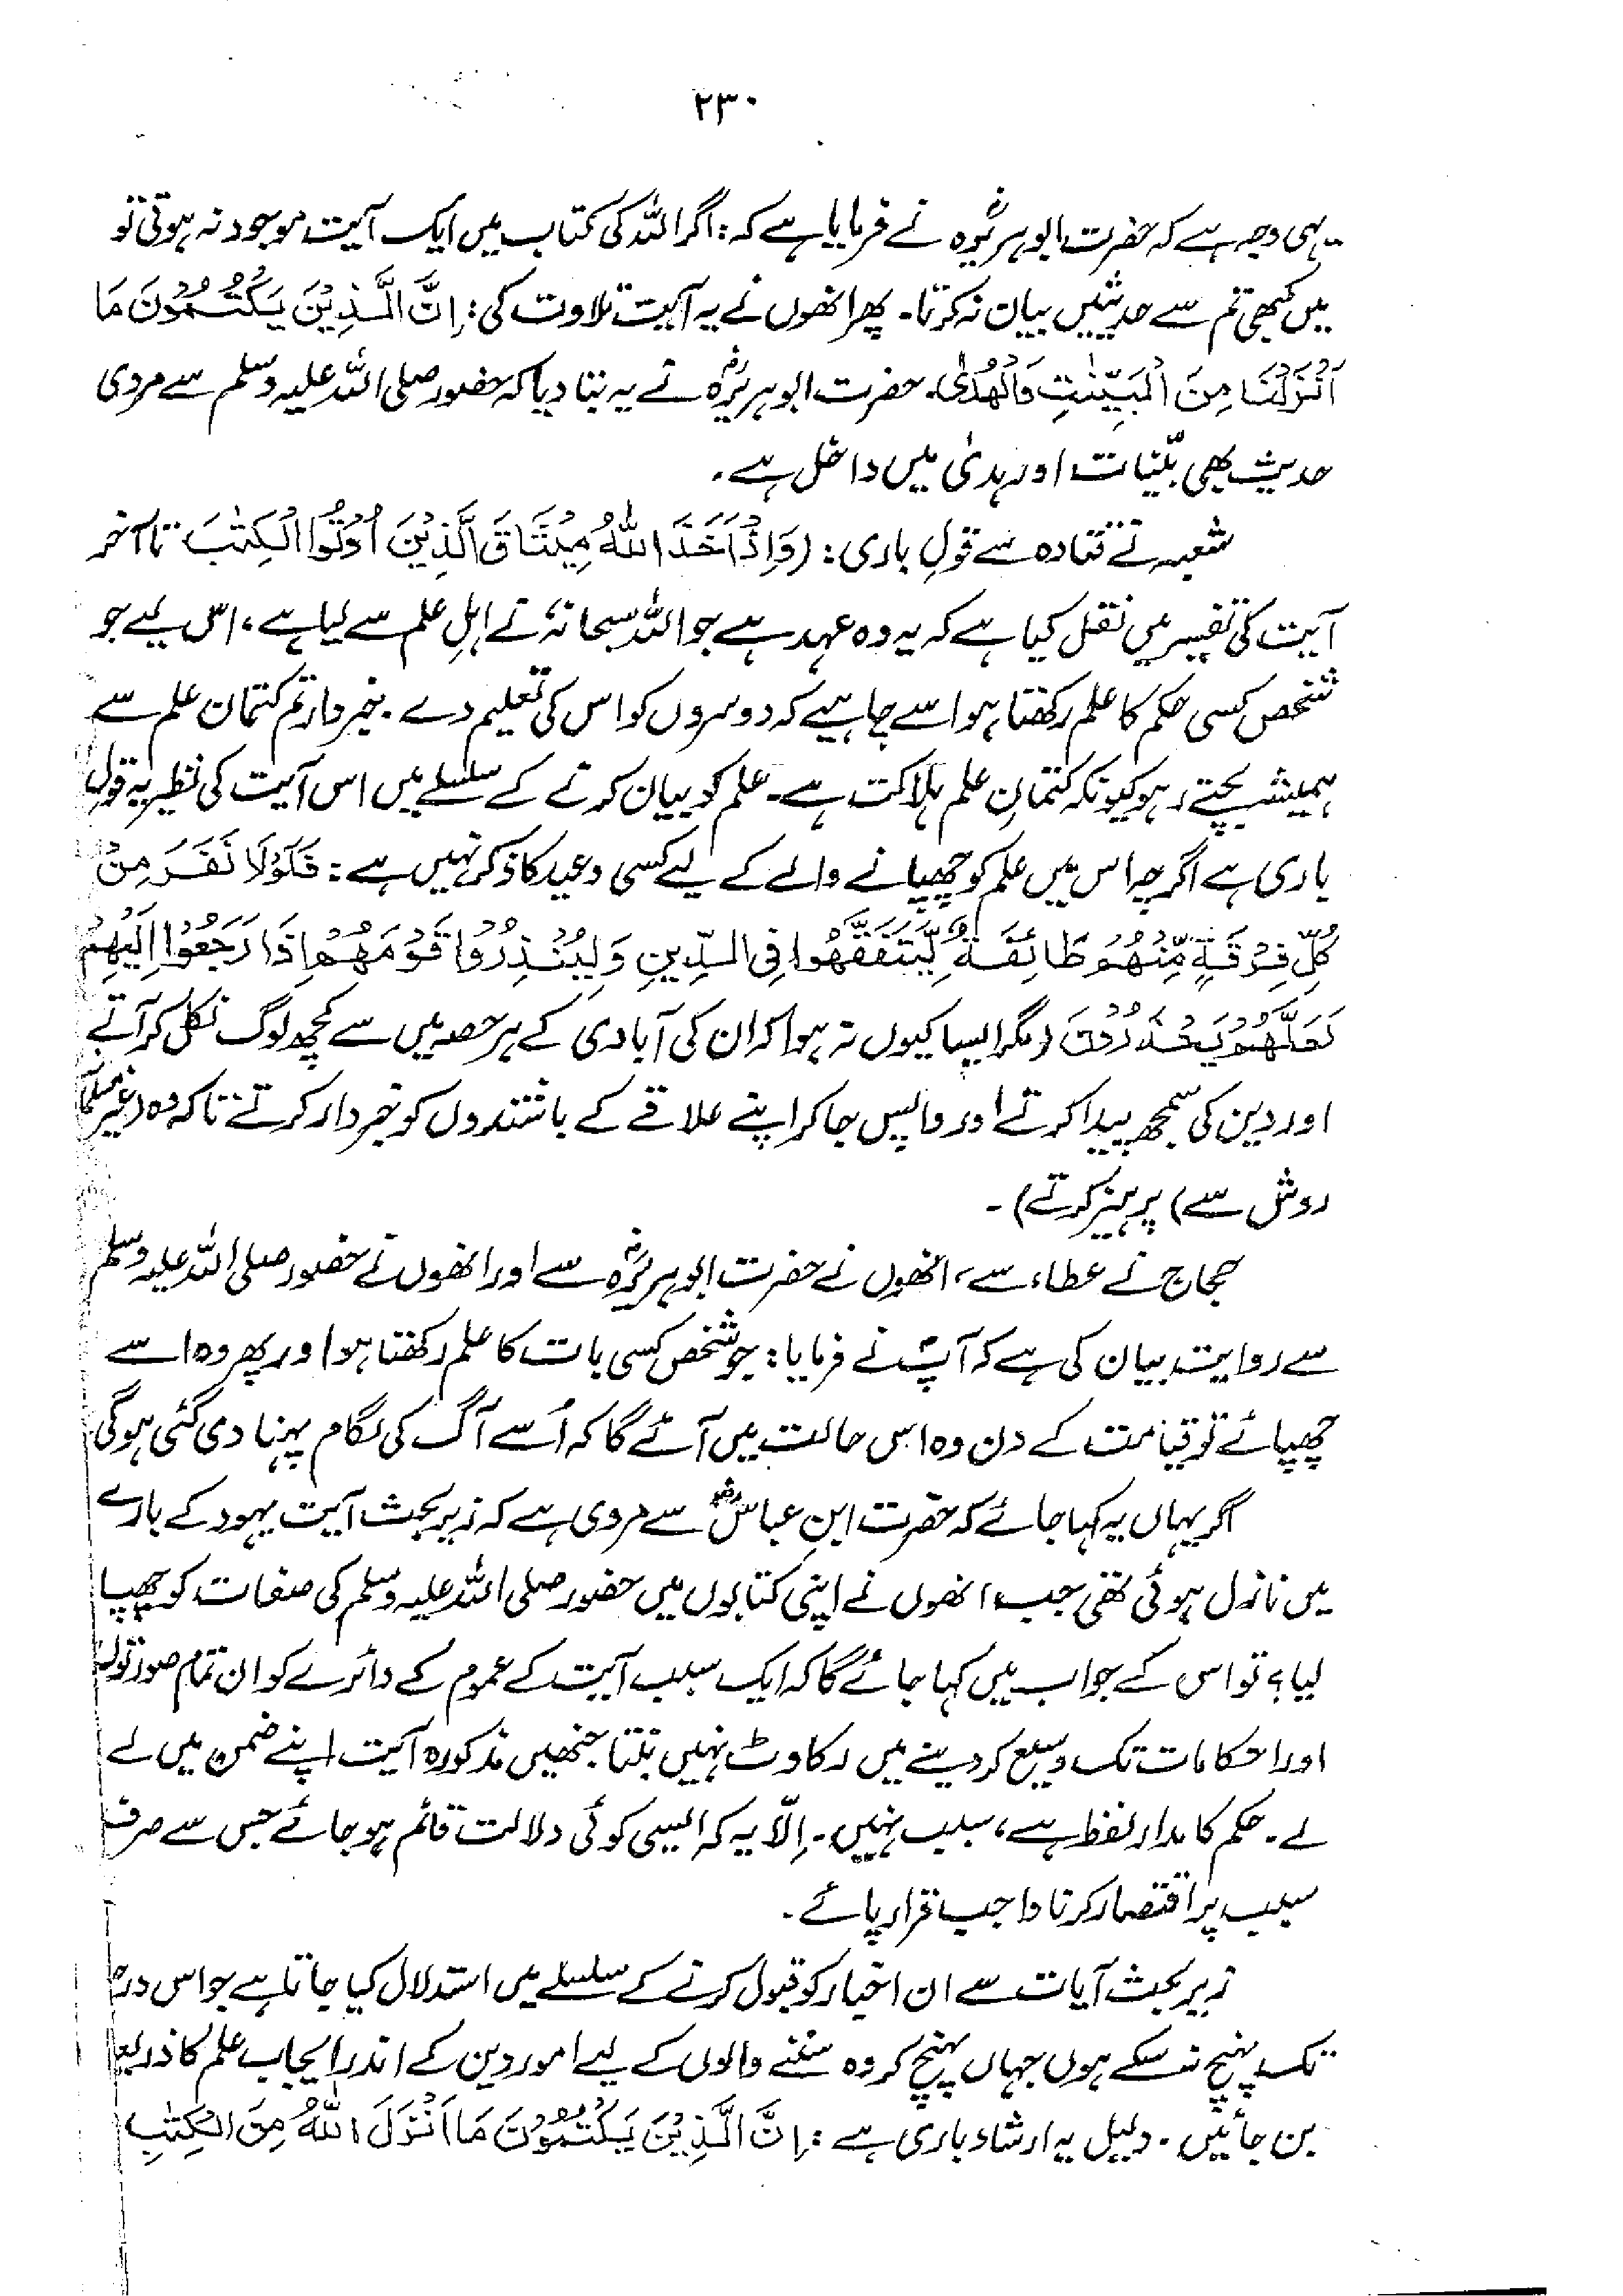 ۲۳۰
یہی وجہ ہے کہ حضرت ابوہریرہؓ نے فرمایا ہے کہ: اگر اللہ کی کتاب میں ایک آیت موجود نہ ہوتی تو
میں کبھی تم سے حدیثیں بیان نہ کرتا۔ پھر انھوں نے یہ آیت تلاوت کی: اِنَّ الَّذِيْنَ يَكْتُمُوْنَ مَا
اَنْزَلْنَا مِنَ الْبَيِّنٰتِ وَالْهُدٰى۔ حضرت ابوہریرہؓ نے یہ بتا دیا کہ حضور صلی اللہ علیہ وسلم سے مروی
حدیث بھی بیّنات اور ہدیٰ میں داخل ہے۔
شعبہ نے قتادہ سے قولِ باری: (وَاِذْ اَخَذَ اللّٰهُ مِيْثَاقَ الَّذِيْنَ اُوْتُوا الْكِتٰبَ تا آخر
آیت کی تفسیر میں نقل کیا ہے کہ یہ وہ عہد ہے جو اللہ سبحانہٗ نے اہلِ علم سے لیا ہے، اس لیے جو
شخص کسی حکم کا علم رکھتا ہو اسے چاہیے کہ دوسروں کو اس کی تعلیم دے۔ خبردار تم کتمان علم سے
ہمیشہ بچتے رہو کیونکہ کتمانِ علم ہلاکت ہے۔ علم کو بیان کرنے کے سلسلے میں اس آیت کی نظیر یہ قولِ
باری ہے اگرچہ اس میں علم کو چھپانے والے کے لیے کسی وعید کا ذکر نہیں ہے: فَلَوْلَا نَفَرَ مِنْ
كُلِّ فِرْقَةٍ مِّنْهُمْ طَائِفَةٌ لِّيَتَفَقَّهُوْا فِى الدِّيْنِ وَلِيُنْذِرُوْا قَوْمَهُمْ اِذَا رَجَعُوْا اِلَيْهِمْ
لَعَلَّهُمْ يَحْذَرُوْنَ (مگر ایسا کیوں نہ ہوا کہ ان کی آبادی کے ہر حصہ میں سے کچھ لوگ نکل کر آتے
اور دین کی سمجھ پیدا کرتے اور واپس جا کر اپنے علاقے کے باشندوں کو خبردار کرتے تاکہ وہ (غیر مسلمانہ
روش سے) پرہیز کرتے)۔
حجاج نے عطاء سے، انھوں نے حضرت ابوہریرہؓ سے اور انھوں نے حضور صلی اللہ علیہ وسلم
سے روایت بیان کی ہے کہ آپؐ نے فرمایا: جو شخص کسی بات کا علم رکھتا ہو اور پھر وہ اسے
چھپائے تو قیامت کے دن وہ اس حالت میں آئے گا کہ اُسے آگ کی لگام پہنا دی گئی ہوگی
اگر یہاں یہ کہا جائے کہ حضرت ابنِ عباسؓ سے مروی ہے کہ زیر بحث آیت یہود کے بارے
میں نازل ہوئی تھی جب انھوں نے اپنی کتابوں میں حضور صلی اللہ علیہ وسلم کی صفات کو چھپا
لیا؟ تو اس کے جواب میں کہا جائے گا کہ ایک سبب آیت کے عموم کے دائرے کو ان تمام صورتوں
اور احکامات تک وسیع کر دینے میں رکاوٹ نہیں بنتا جنھیں مذکورہ آیت اپنے ضمن میں لے
لے۔ حکم کا مدار لفظ ہے، سبب نہیں۔ اِلّا یہ کہ ایسی کوئی دلالت قائم ہو جائے جس سے صرف
سبب پر اقتصار کرنا واجب قرار پائے۔
زیر بحث آیات سے ان اخبار کو قبول کرنے کے سلسلے میں استدلال کیا جاتا ہے جو اس درجے
تک پہنچ نہ سکے ہوں جہاں پہنچ کر وہ سننے والوں کے لیے امور دین کے اندر ایجاب علم کا ذریعہ
بن جائیں۔ دلیل یہ ارشاد باری ہے: اِنَّ الَّذِيْنَ يَكْتُمُوْنَ مَا اَنْزَلَ اللّٰهُ مِنَ الْكِتٰبِ